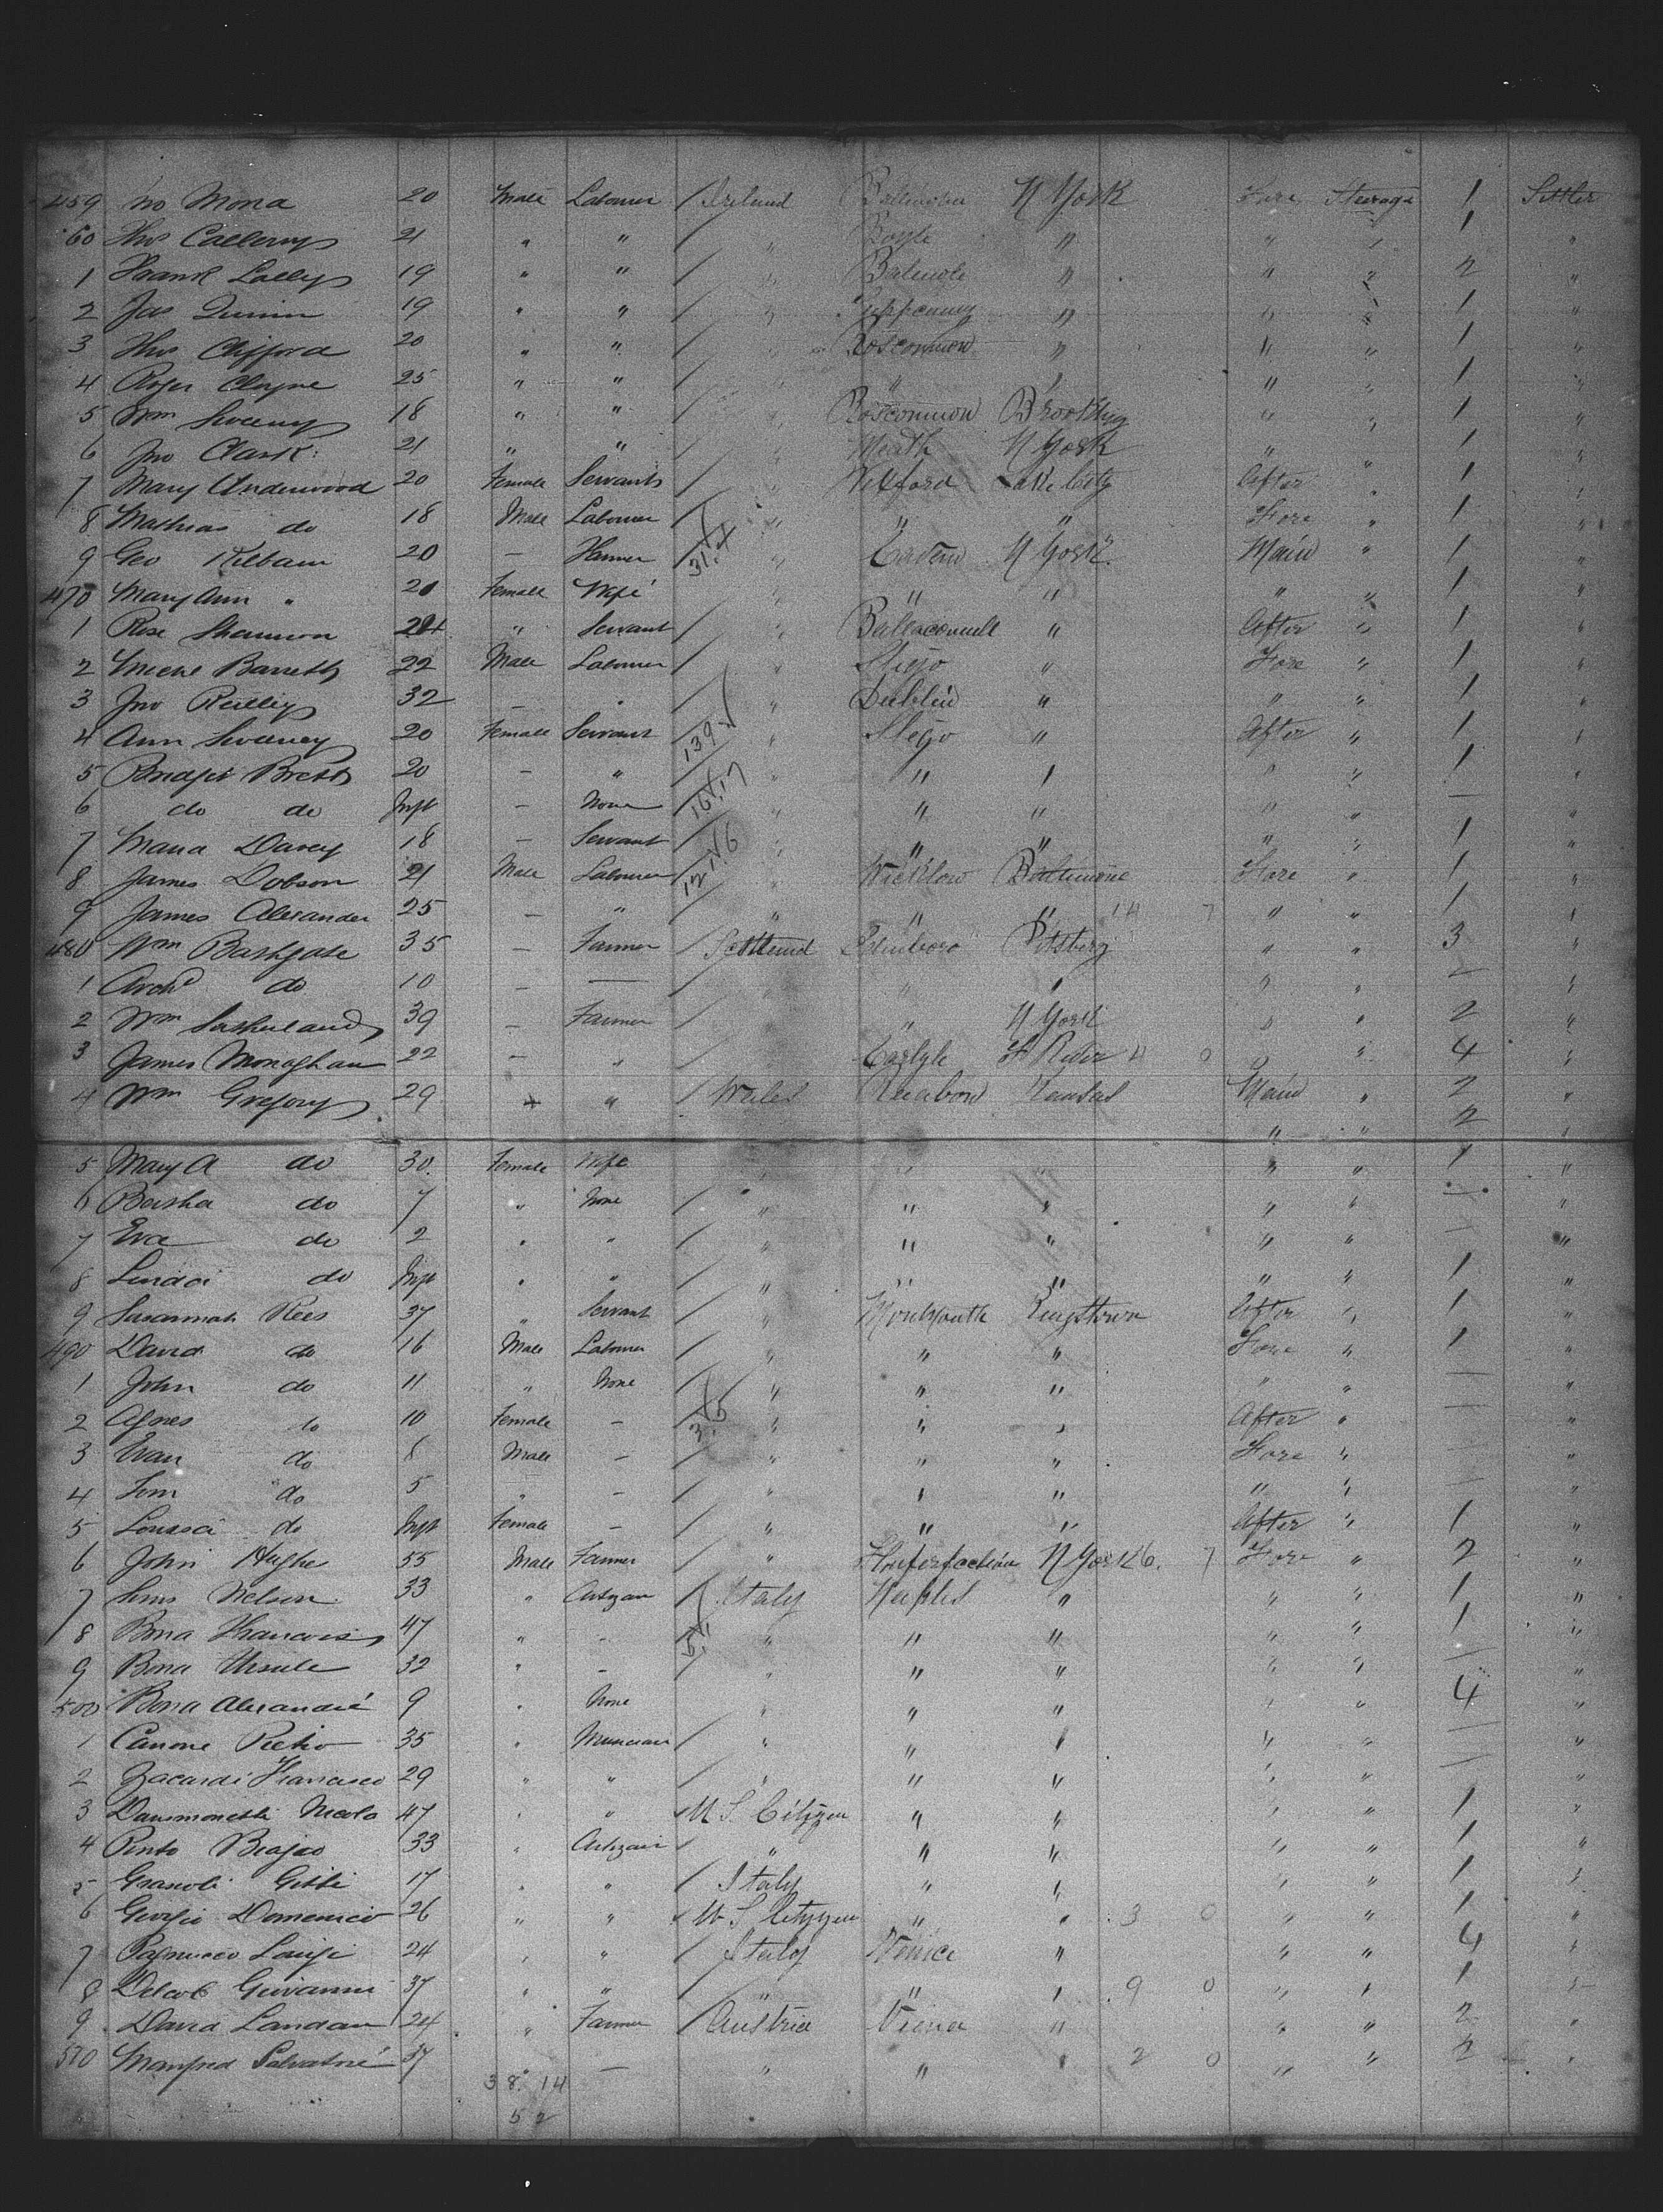 459 Mona 20 Male Labourer / Ireland N York Fore Steerage 1 Settler
60 Thos 21 " " / " Boyle " " " 1 "
1 Frank Lally 19 " " / " " " " 2 "
2 Jas Quinn 19 " " / " " " " 1 "
3 Thos Clifford 20 " " / " Roscommon " " " 1 "
4 Roger Cloyne 25 " " / " " " " " 1 "
5 Wm Sweeny 18 " " / " Roscommon Brooklyn " " 1 "
6 Jno Clark 21 " " / " Meath N York " " 1 "
7 Mary Underwood 20 Female Servants / " Wexford Lake City After " 1 "
8 Mathias do 18 Male Labourer / " " " Fore " 1 "
9 Geo Kilbain 20 – Farmer / " Cavan N York Main " 1 "
470 Mary Ann " 20 Female Wife / " " " " " 1 "
1 Rose Shannon " Servant / " Ballaconnell " After " 1 "
2 Michl Barrett 22 Male Labourer / " Sligo " Fore " 1 "
3 Jno Reilly 32 – " / " Dublin " " " 1 "
4 Ann Sweeney 20 Female Servant / " Sligo " After " 1 "
5 Bridget Brett 20 – " / " " " " " 1 "
6 do do Inft – None / " " " " " — "
7 Maria Davey 18 – Servant / " " " " " 1 "
8 James Dobson 21 Male Labourer / " Wicklow Baltimore Fore " 1 "
9 James Alexander 25 – " / " " " 14 7 " " 1 "
480 Wm Bathgate 35 – Farmer / Scotland Edinboro Pitsburg " " 3 "
1 Archd do 10 – — / " " " " " — "
2 Wm Sutherland 39 – Farmer / " " N York " " 2 "
3 James Monaghan 22 – " / " Carlyle F River 4 0 " " 4 "
4 Wm Gregory 29 " " / Wales Ruabon Kansas Main " 2 "
" " 2 "
5 Mary A do 30 Female Wife " " " " " 1 "
6 Bertha do 7 " None / " " " " " — "
7 Eva do 2 " " / " " " " " — "
8 do Inft " " / " " " " " 1 "
9 Susannah Rees 37 " Servant / " Monmouth Kingstown After " 1 "
490 David do 16 Male Labourer / " " " Fore " 1 "
1 John do 11 " None / " " " " " — "
2 Agnes do 10 Female – / " " " After " — "
3 Evan do 8 Male – / " " " Fore " — "
4 Tom do 5 " – / " " " " " — "
5 do Inft Female – / " " " After " 1 "
6 John Hughe 55 Male Farmer / " N York 26. 7 Fore " 2 "
7 Nelson 33 " Artizan / Italy Naples " " " 1 "
8 Bona Francois 47 " – / " " " " " 1 "
9 Bona Ursule 32 " – / " " " " " — "
500 Bona Alexandré 9 " None " " " " " 4 "
1 Canone Pietro 35 " Musician / " " " " " — "
2 Zacardi Francisco 29 " " / " " " " " — "
3 Nicola 47 " " / U S. Citizen " " " " 1 "
4 Pinto Biagio 33 " Artizan / " " " " " 1 "
5 17 " " / Italy " " " " 1 "
6 Giorgio Domenico 26 " " / U S Citizen " " 3 0 " " 1 "
7 Pagnucco Luigi 24 " " / Italy Venice " " " 4 "
8 Giovanni 37 " " / " " " 9 0 " " 1 "
9 David Landau 24 " Farmer / Austria Viena " " " 2 "
510 Manfred Salvatoré 37 — " " " 2 0 " " 2 "
38. 14
52